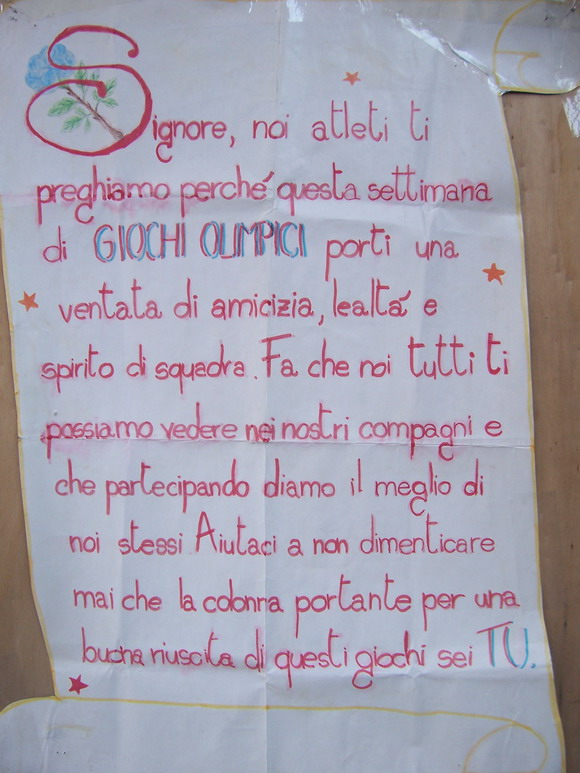 Signore, noi atleti ti
preghiamo perché questa settimana
di GIOCHI OLIMPICI porti una
ventata di amicizia, lealtà e
spirito di squadra. Fa che noi tutti ti
possiamo vedere nei nostri compagni e
che partecipando diamo il meglio di
noi stessi Aiutaci a non dimenticare
mai che la colonna portante per una
buona riuscita di questi giochi sei TU.